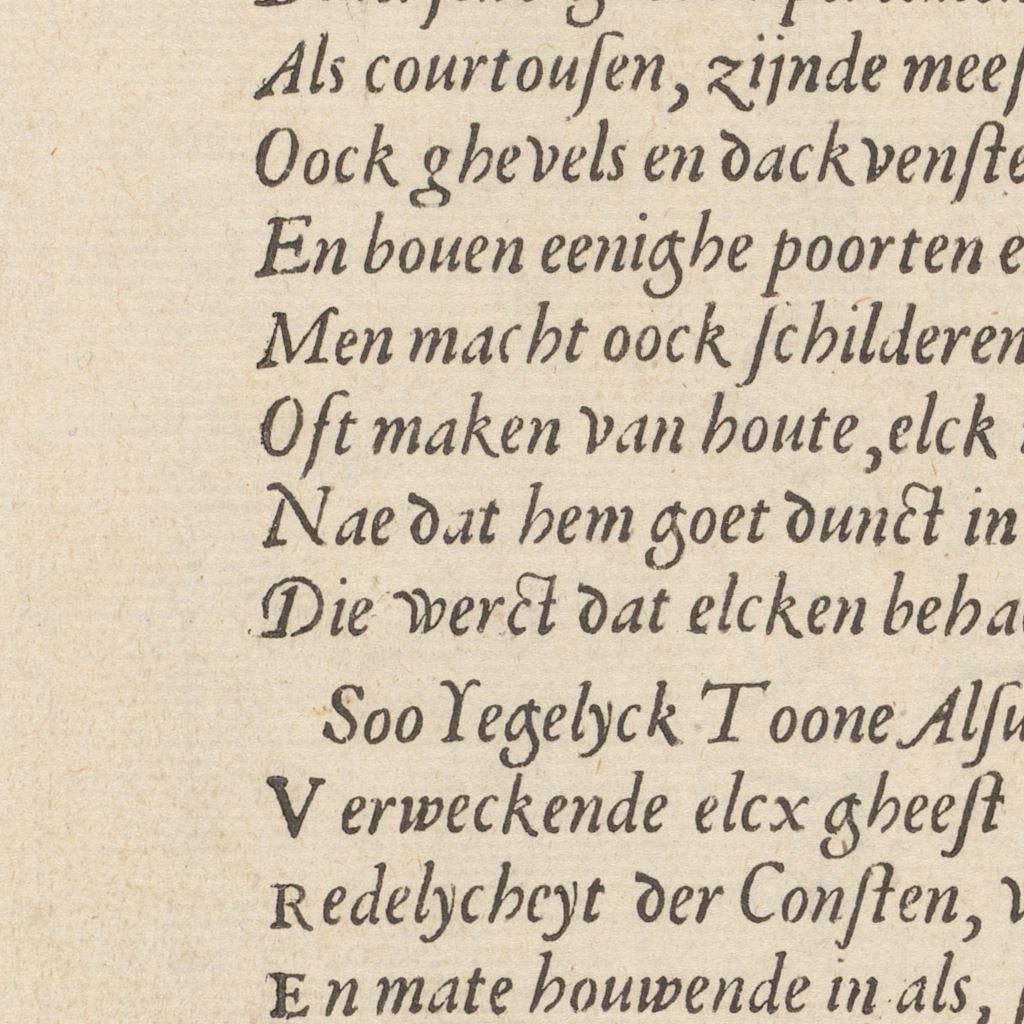 Als courtouſen, zijnde meeſ
Oock ghevels en dackvenſte
En bouen eenighe poorten e
Men macht oock ſchilderen
Oft maken van houte, elck
Nae dat hem goet dunct in
Die werct dat elcken beha
Soo Yegelyck Toone Alſu
Verweckende elcx gheeſt
Redelycheyt der Conſten, V
En mate houwende in als,